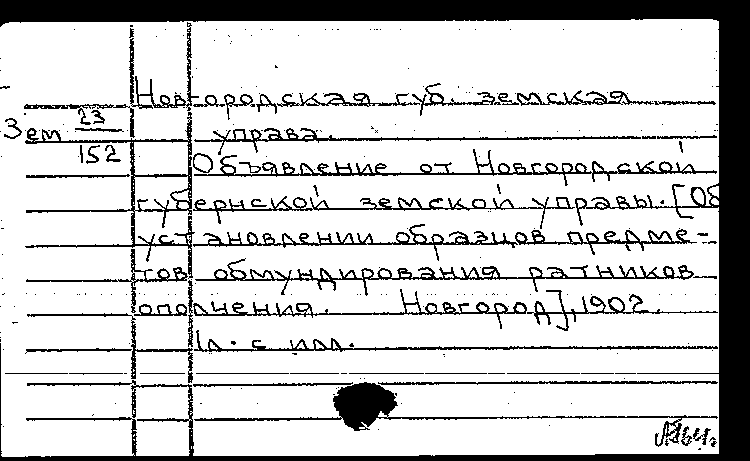 Новгородская губ. земская
Зем 23/152
управа.
Объявление от Новгородской
губернской земской управы. [Об
установлении образцов предме-
тов обмундирования ратников
ополчения. Новгород], 1902.
1л. с илл.